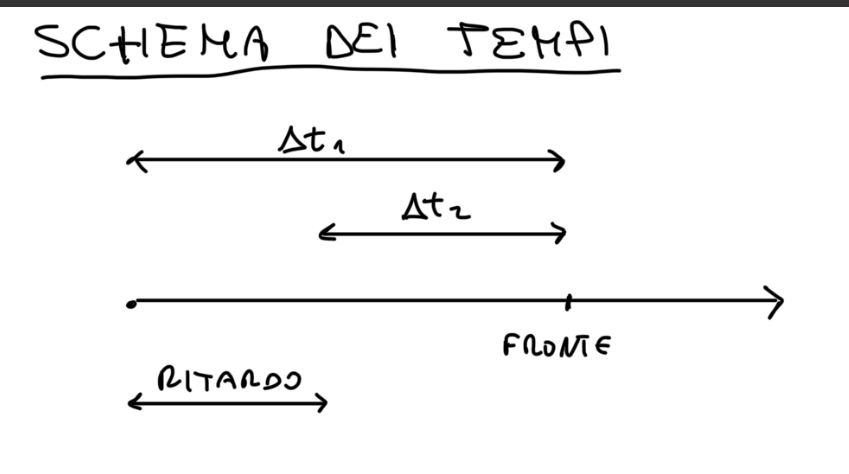 SCHEMA DEI TEMPI
Δt1
Δt2
FRONTE
RITARDO